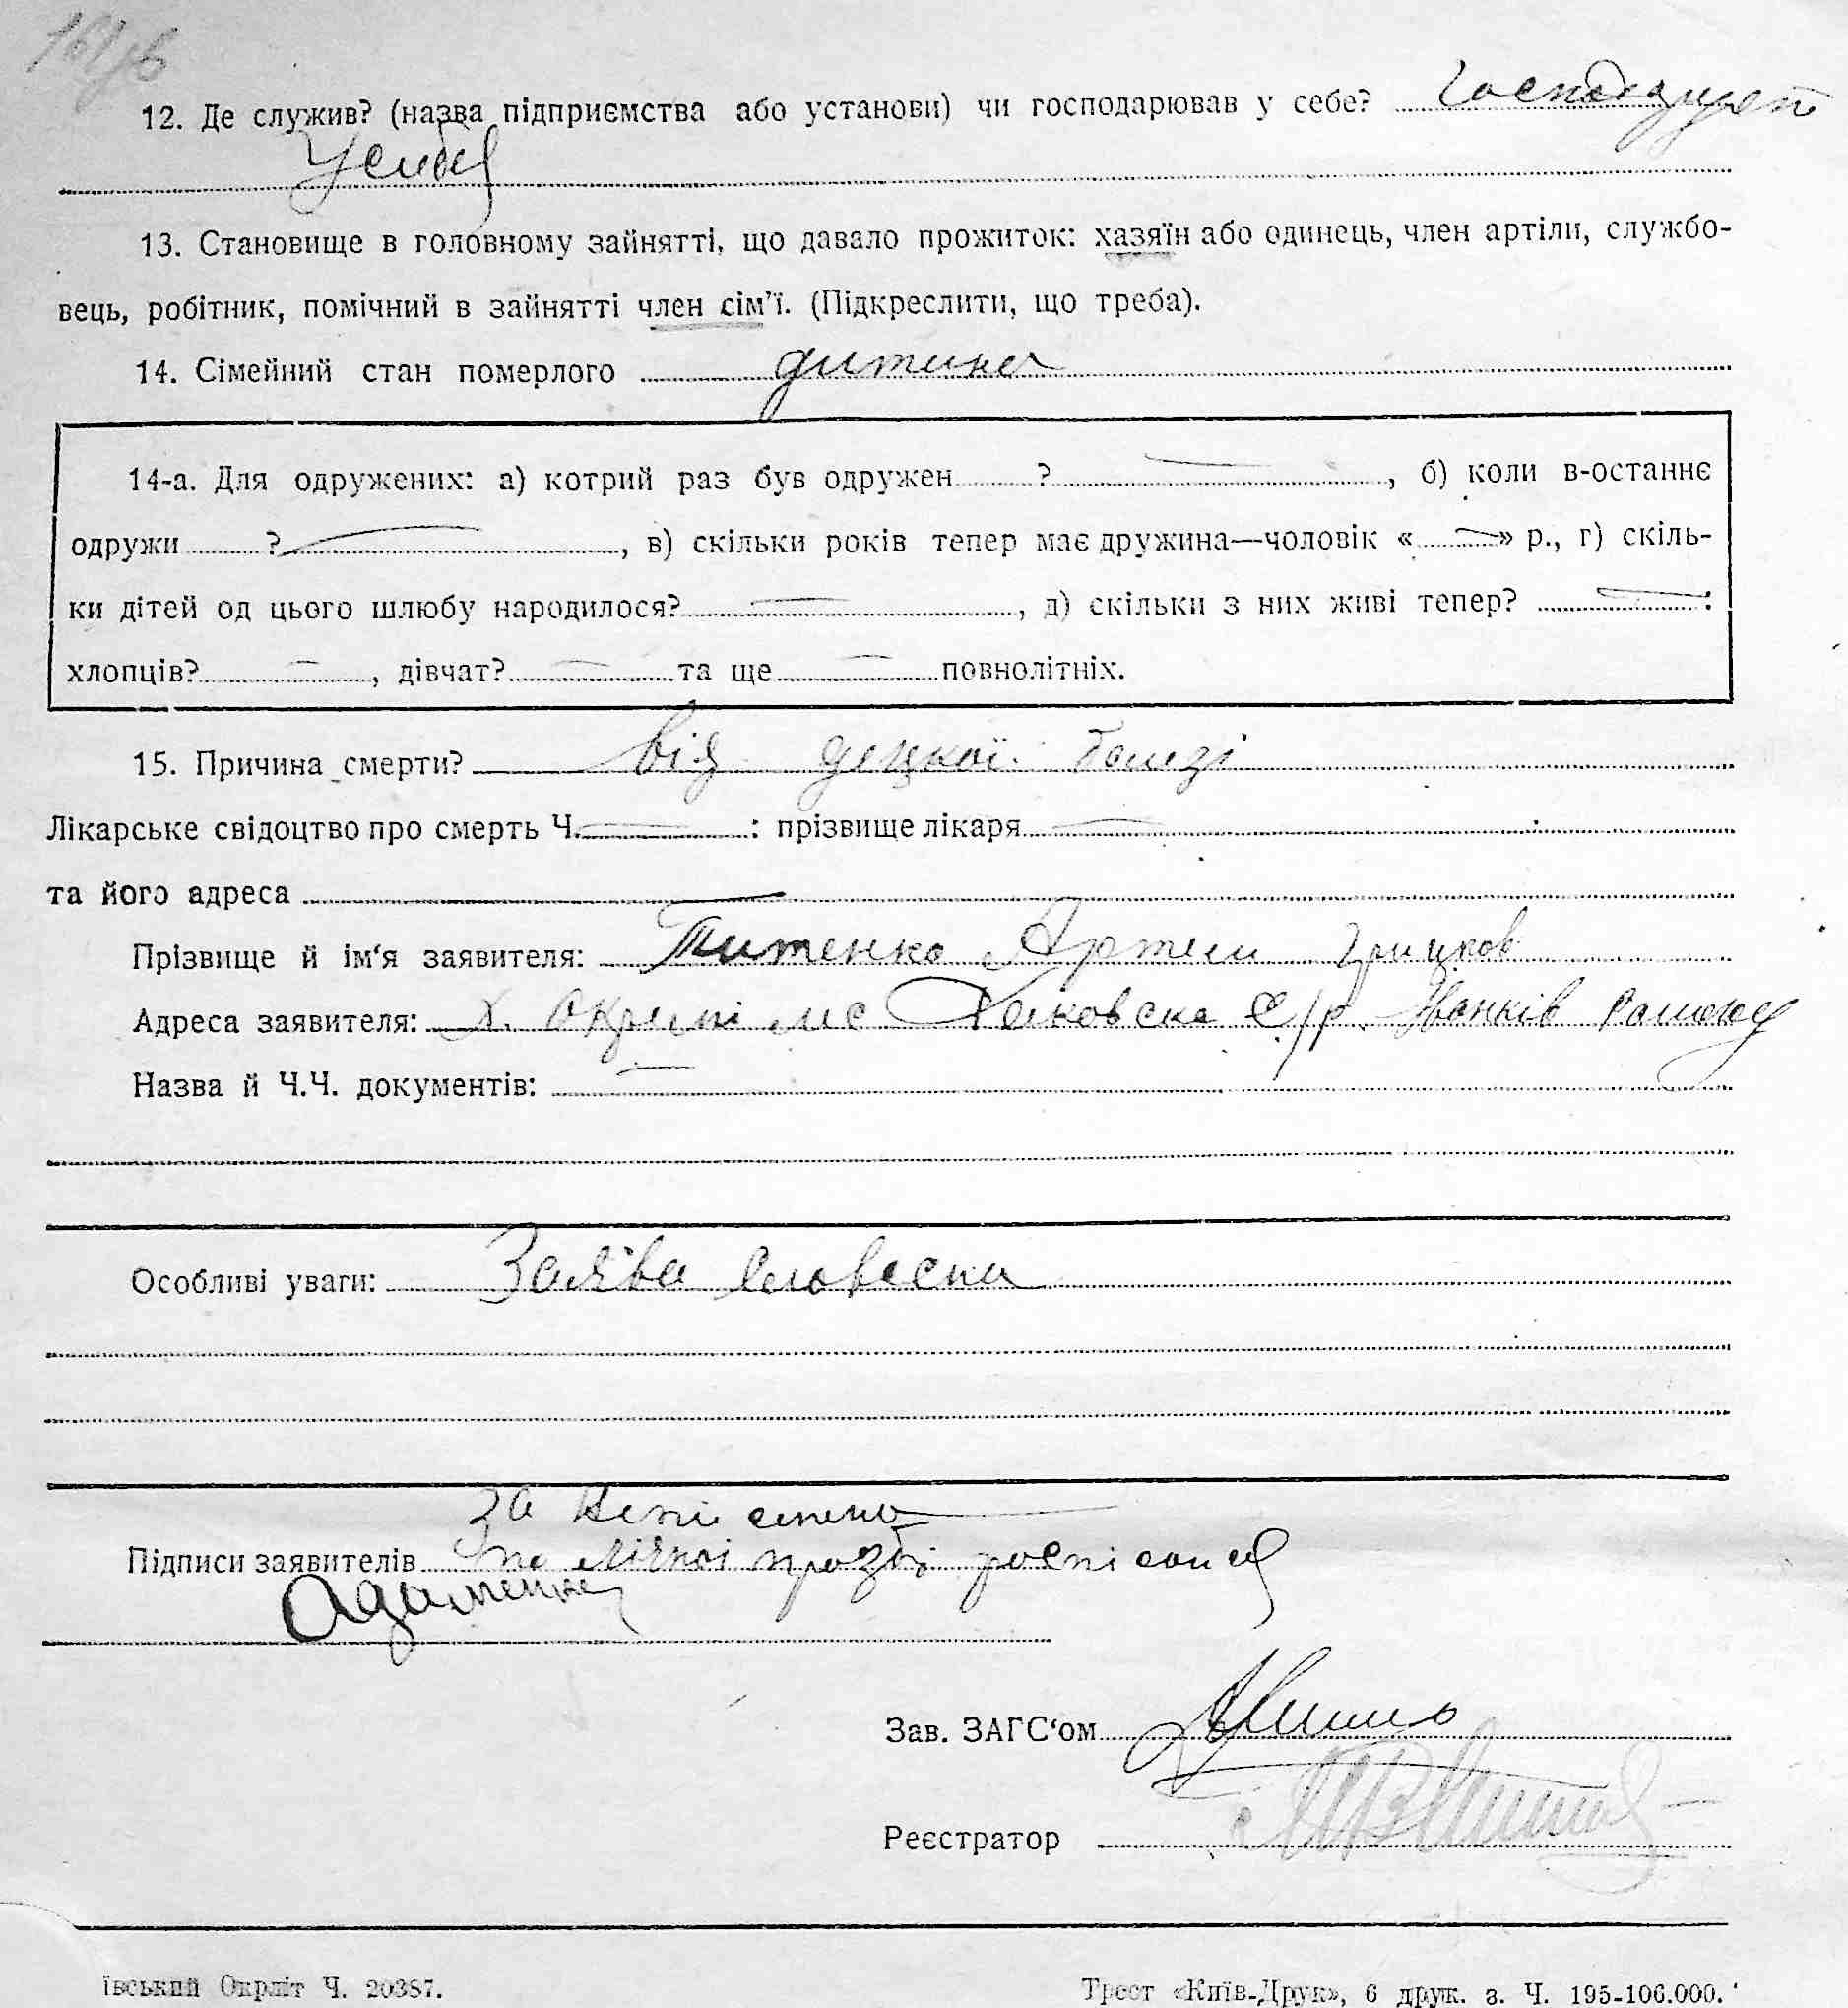 12. Де служив? (назва підприємства або установи) чи господарював у себе? Господарует
У себе
13. Становище в головному зайнятті, що давало прожиток: хазяїн або одинець, член артіли, службо-
вець, робітник, помічний в зайнятті член сім’ї. (Підкреслити, що треба).
14. Сімейний стан померлого дитина
14-а. Для одружених: а) котрий раз був одружен ? — , б) коли в-останнє
одружи ? — , в) скільки років тепер має дружина—чоловік « — » р., г) скіль-
ки дітей од цього шлюбу народилося? — , д) скільки з них живі тепер? — :
хлопців? — , дівчат? — та ще — повнолітніх.
15. Причина смерти? від децкої
Лікарське свідоцтво про смерть Ч. — : прізвище лікаря —
та його адреса —
Прізвище й ім‘я заявителя: Титенко Артем Грицков
Адреса заявителя: х. С/р. Іванків
Назва й Ч.Ч. документів: —
Особливі уваги: Заява словесна
За
Підписи заявителів по лічной прозбі
Адаменко
Зав. ЗАГС‘ом
Реєстратор
ївський Окрліт Ч. 20387.
Трест «Київ-Друк», 6 друк. з. Ч. 195-106.000.